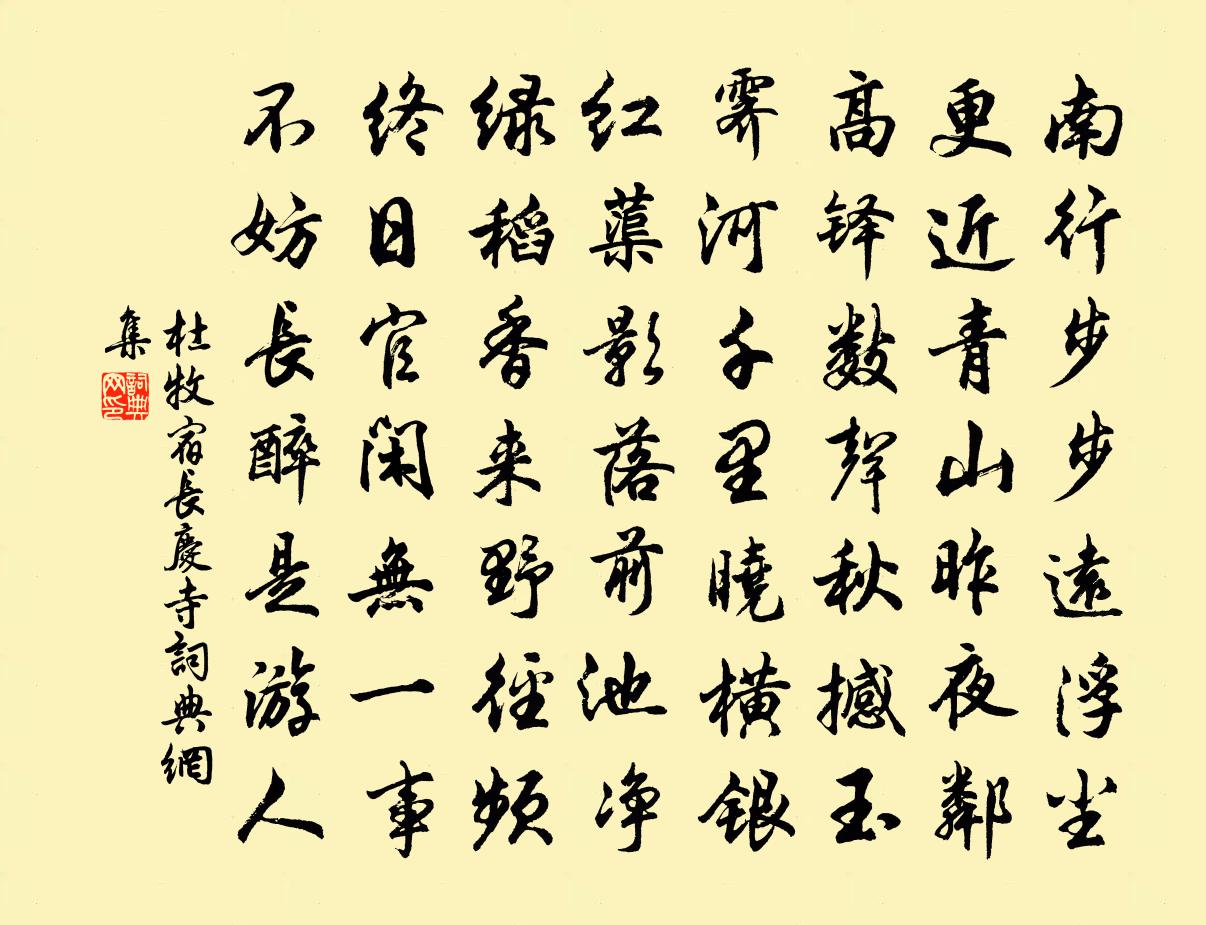 南行步步遠浮尘
更近青山昨夜鄰
高铎数聲秋撼玉
霁河千里曉橫银
红蕖影落前池净
绿稻香来野徑频
终日官闲無一事
不妨長醉是游人
杜牧宿長慶寺詞典網
集
詞典网印